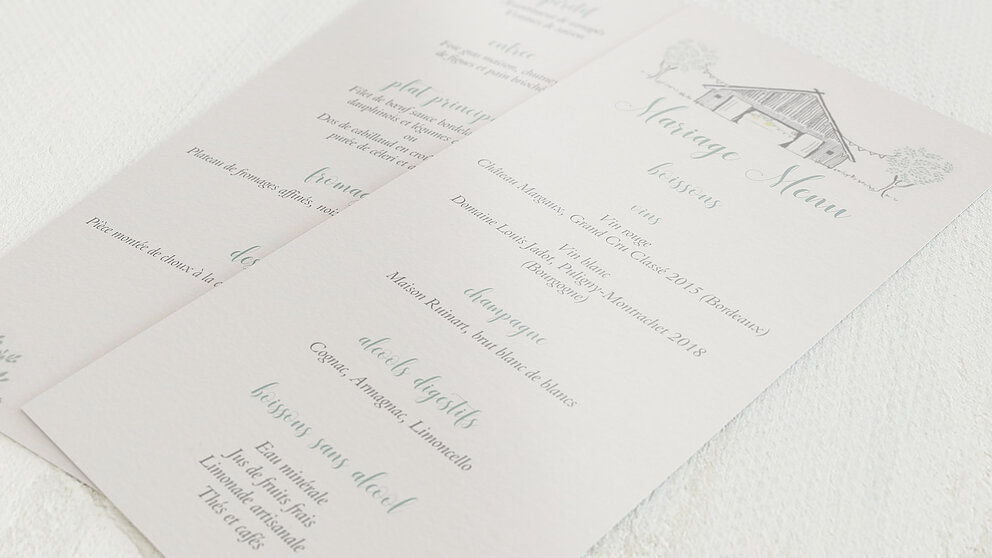 Mariage Menu
boissons
vins
Vin rouge
Château Margaux, Grand Cru Classé 2015 (Bordeaux)
Vin blanc
Domaine Louis Jadot, Puligny-Montrachet 2018
(Bourgogne)
champagne
Maison Ruinart, brut blanc de blancs
alcools digestifs
Cognac, Armagnac, Limoncello
boissons sans alcool
Eau minérale
Jus de fruits frais
Limonade artisanale
Thés et cafés
entrée
Foie gras maison,
de figues et pain
plat princip
Filet de bœuf sauce
dauphinois et légumes
ou
Dos de cabillaud en
purée de céleri et
fromag
Plateau de fromages affinés,
des
Pièce montée de choux à la